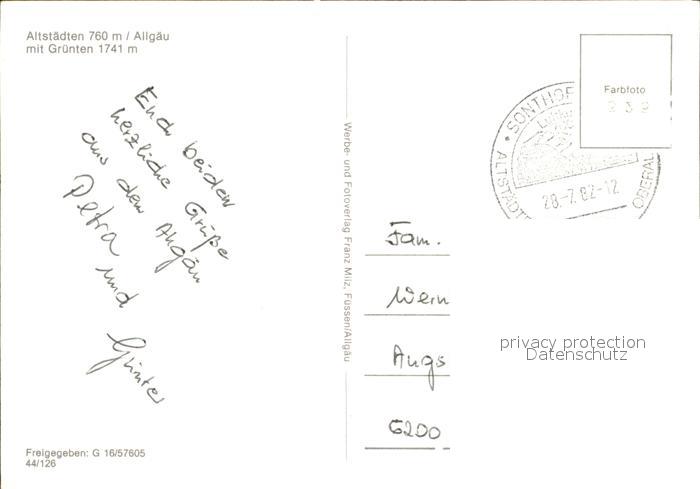 Altstädten 760 m / Allgäu
mit Grünten 1741 m
Euch beiden
herzliche Grüße
aus dem Allgäu
Petra und
Günter
Freigegeben: G 16/57605
44/126
Werbe- und Fotoverlag Franz Milz, Füssen/Allgäu
Farbfoto
239
SONTHOF
ALTSTÄDT
OBERAL
28.-7.82-12
Fam.
Wern
Augs
6200
privacy protection
Datenschutz